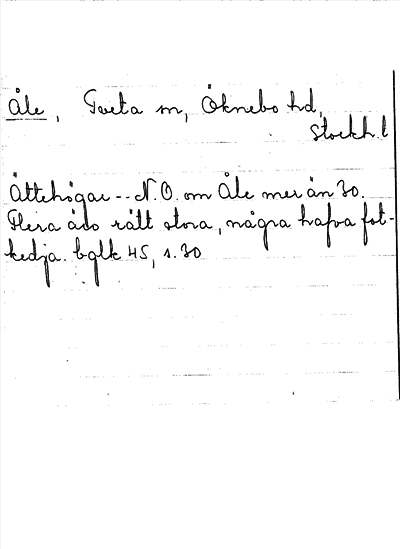 Åle, Tveta sn, Öknebo hd,
Stockh. l
Ättehögar -- N.O. om Åle mer än 30.
Flera äro rätt stora, några hafva fot-
kedja. bglk 45, s. 30